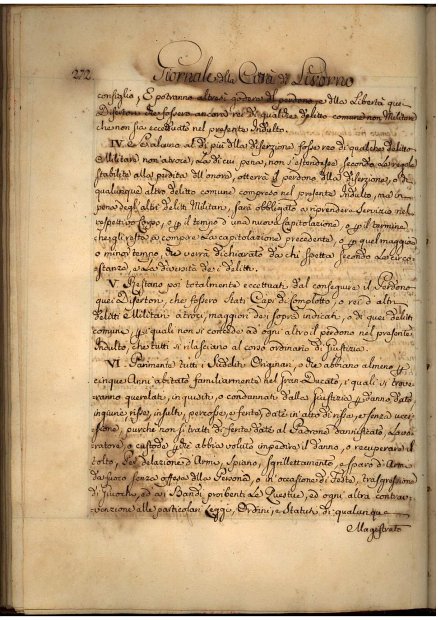 272. Giornale della Città di Livorno
consiglio, E potranno altresì godere del perdono, e della Libertà quei
Disertori che fossero ancora rei di qualche delitto comune non Militare
che non sia eccettuato nel presente Indulto.
IV. Se alcuno al di più della Diserzione, fosse reo di qualche delitto
Militare non atroce, la di cui pena, non s'estendesse, secondo le regole
stabilite alla perdita dell'onore, otterrà il perdono della Diserzione, o di
qualunque altro delitto comune compreso nel presente Indulto, ma in
pena degli altri delitti Militari, sarà obbligato a riprendere Servizio nel
respettivo Corpo, o p il tempo d'una nuova Capitolazione, o p il termine
che gli resta a compire la capitolazione precedente, o p quel maggiore
o minor tempo, che verrà dichiarato da chi spetta secondo le circo-
stanze, e la diversità dei delitti.
V. Restano poi totalmente eccettuati dal conseguire il Perdono
quei Disertori, che fossero Stati Capi di Complotto, o rei d'altri
delitti Militari atroci, maggiori dei sopra indicati, o di quei delitti
comuni, p i quali non si concede ad ogni altro il perdono nel presente
Indulto, che tutti si rilasciano al corso ordinario di Giustizia.
VI. Parimente tutti i Sudditi Originari, o che abbiano almeno p
cinque Anni abitato familiarmente nel Gran Ducato, i quali si trove-
ranno querelati, inquisiti, o condannati dalla Giustizia p danno dato
ingiurie, risse, insulti, percosse, e ferite, date in atto di rissa, e senza ucci-
sione, purchè non si tratti di ferite date al Padrone dannificato, Lavo-
ratore, o custode p che abbia voluto impedire il danno, o recuperare il
tolto, Per delazione d'Armi, Spiano, Sgrillettamento, e sparo d'Arme
da fuoco senza offesa della Persona, o in occasione di Feste, trasgressione
di Giuochi, ed ai Bandi proibenti le Questue, ed ogni altra contrav-
venzione alle particolari Leggi, Ordini, e Statuti di qualunque
Magistrato